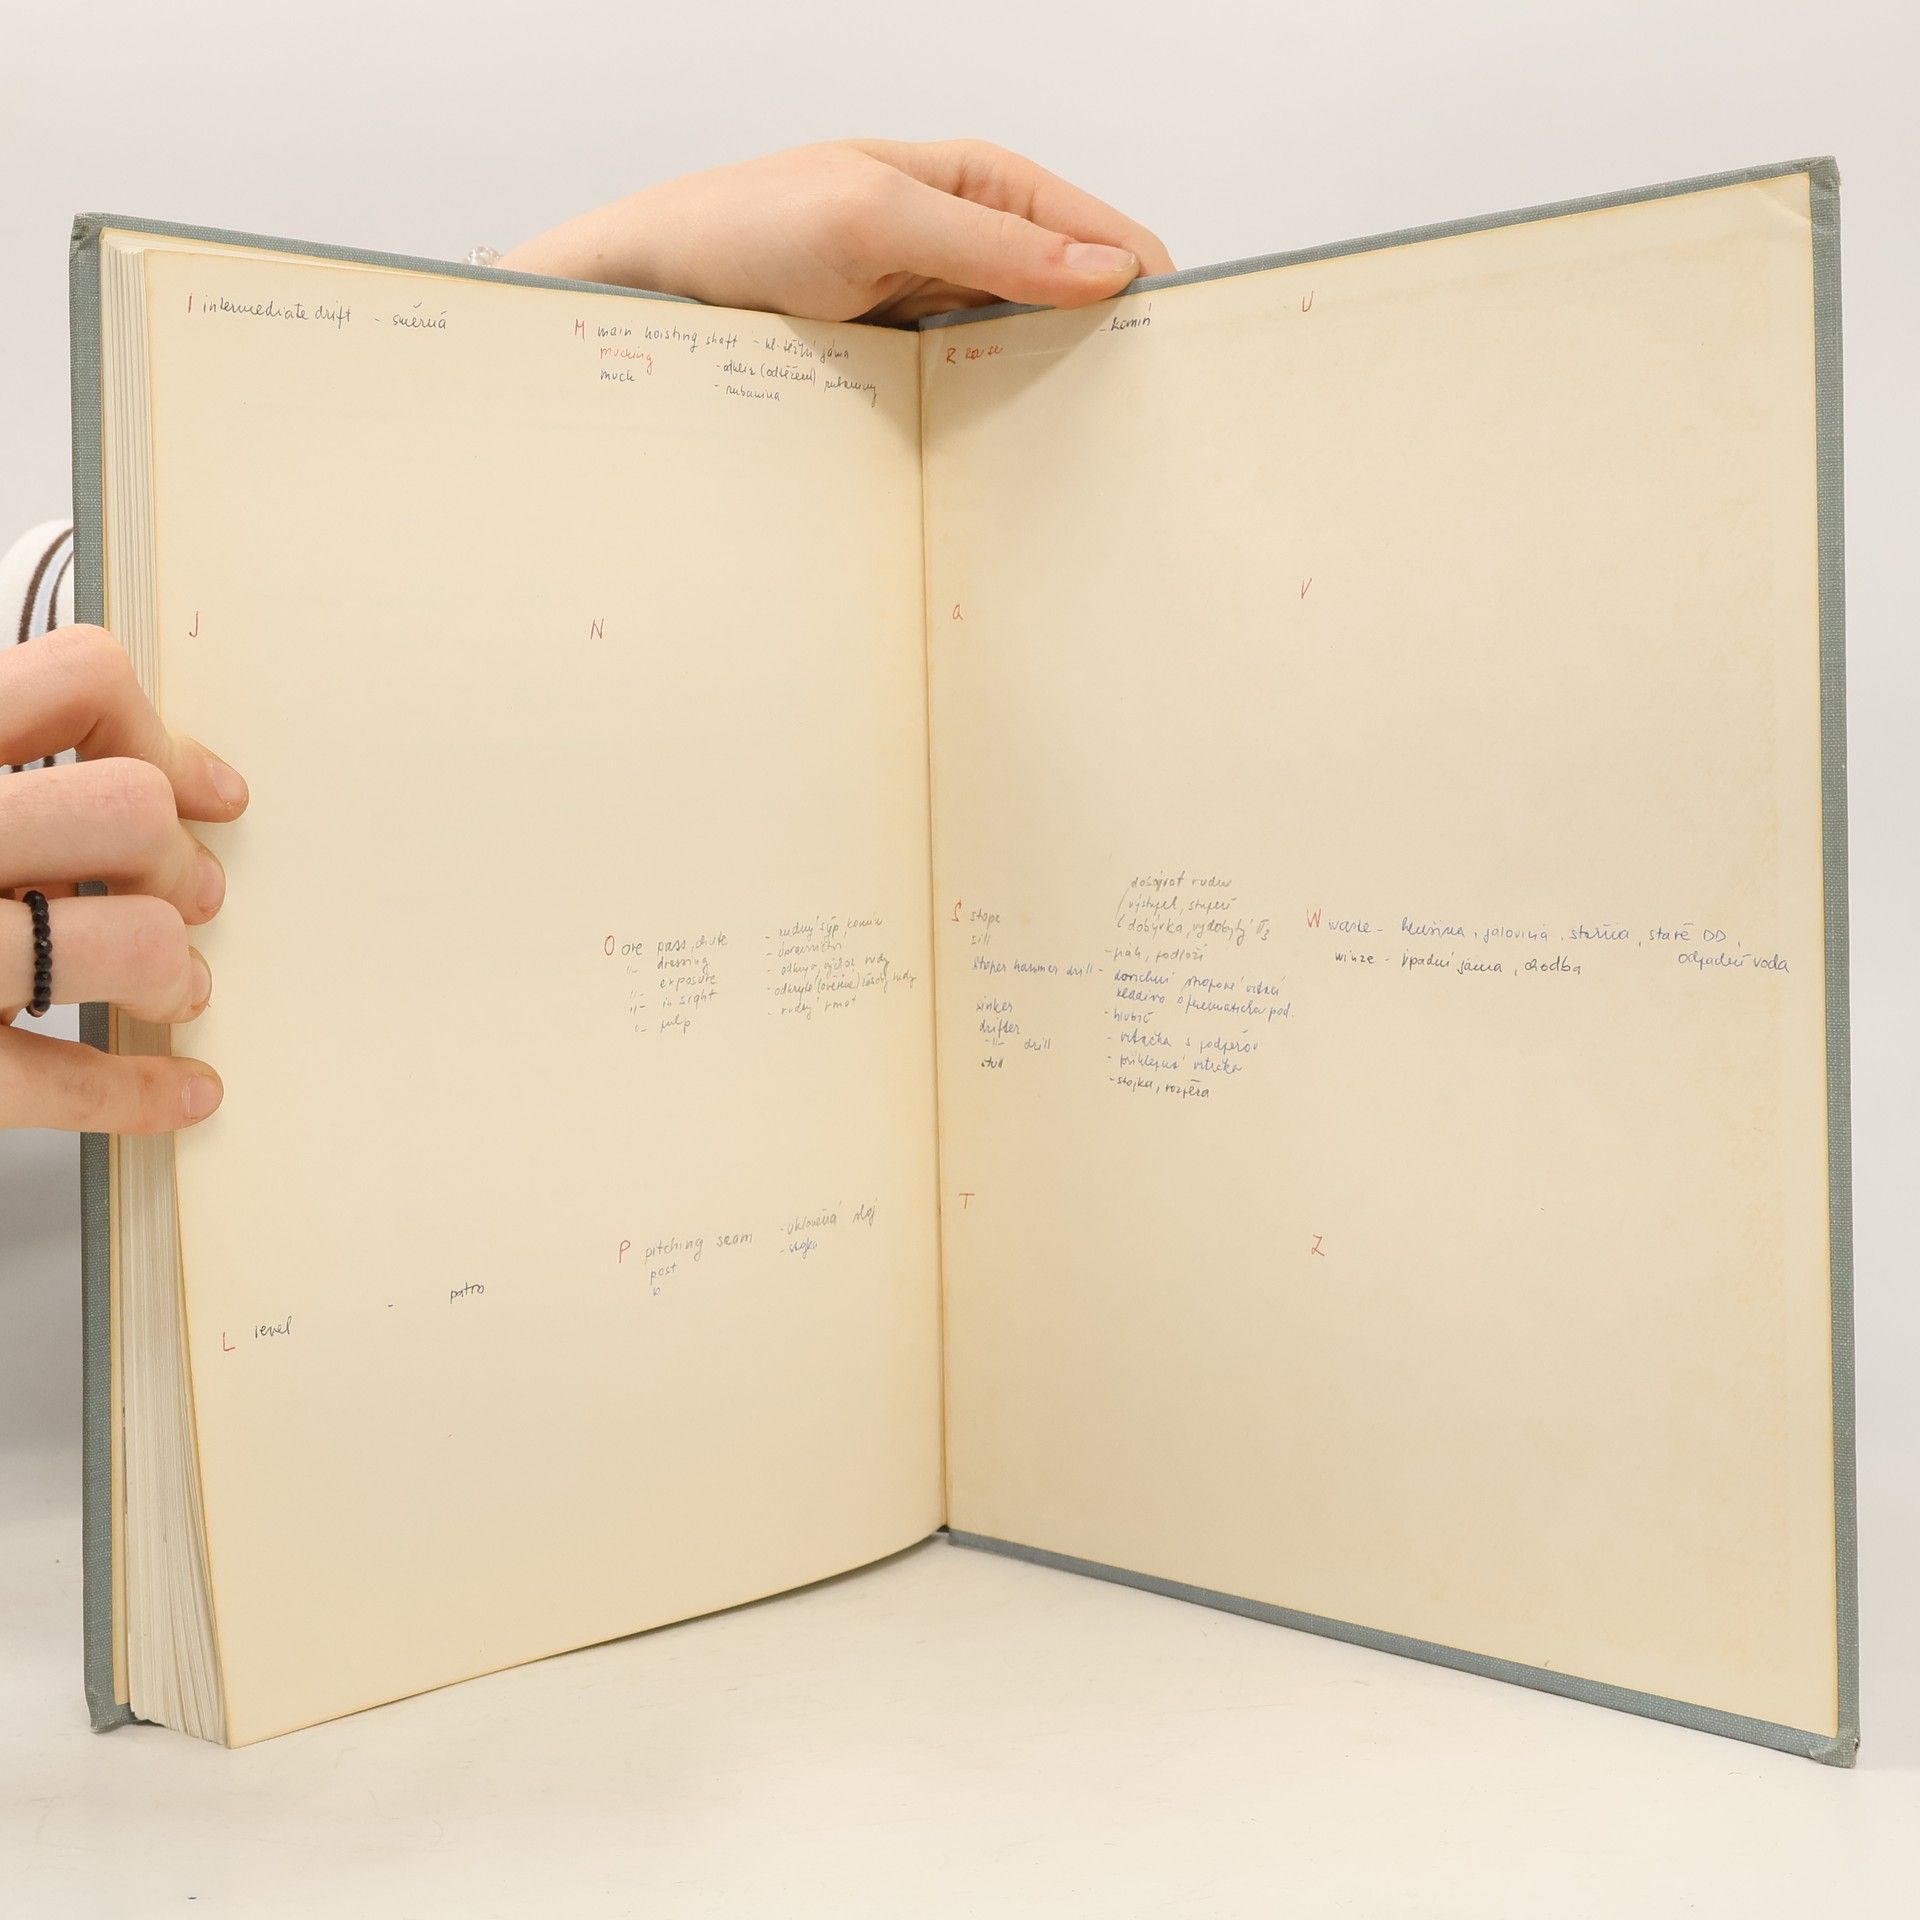 I intermediate drift - směrná
J
L level - patro
M main hoisting shaft - hl. těžní jáma
mucking - odkliz (odtěžení) rubaniny
muck - rubanina
N
O ore pass, chute - rudný sýp, komín
-"- dressing - úpravnictví
-"- exposure - odkryv, výchoz rudy
-"- in sight - rudy
-"- pulp - rudný rmut
P pitching seam - ukloněná sloj
post - stojka
R - komín
Q
S stope dobývat rudu
(výstupek, stupeň
(dobývka, vydobytý
sill - práh, podloží
stoper hammer drill - vrtací
kladivo
sinker - hlubič
drifter - vrtačka s podpěrou
-"- drill - vrtačka
stull - stojka, rozpěra
T
U
V
W waste - hlušina, jalovina, stařina, staré DD,
odpadní voda
winze - úpadní jáma, chodba
Z